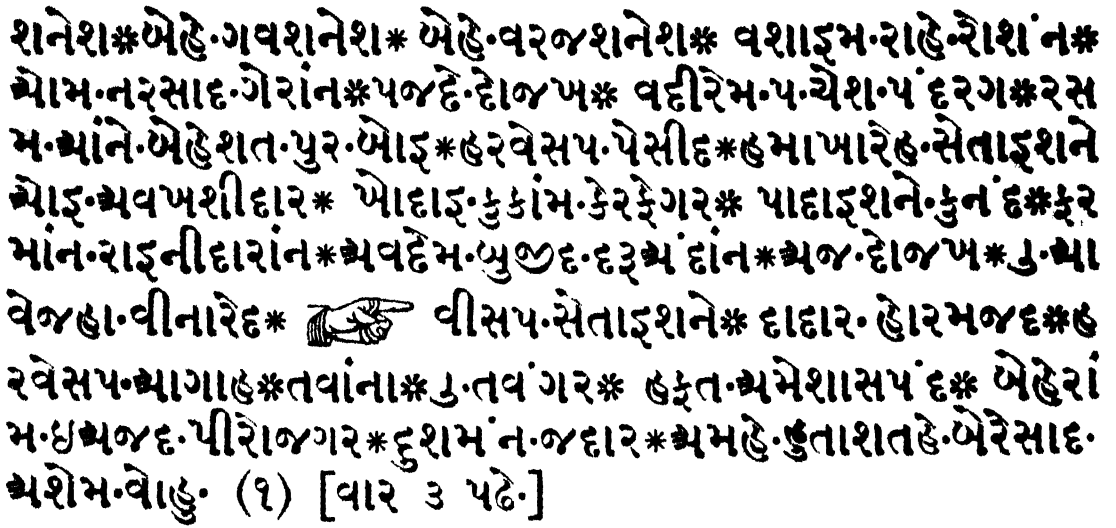 શનેશ*બેહે·ગવશનેશ* બેહે·વરજશનેશ* વશાઇમ·રાહે·રોશંન*
ઓમ·નરસાદ·ગેરાંન*પજદે·દોજખ* વદીરેમ·પ·ચેશ·પંદરગ*રસ
મ·આંને·બેહેશત·પુર·બોઇ*હરવેસપ·પેસીદ*હમાખારેહ·સેતાઇશને
ઓઇ·અવખશીદાર* ખોદાઇ·કુકાંમ·કેરફેગર* પાદાઇશને·કુનંદ*ફર
માંન·રાઇનીદારાંન*અવદેમ·બુજીદ·દરૂઅંદાંન*અજ·દોજખ*ઽુ·આ
વેજહા·વીનારેદ* વીસપ·સેતાઇશને* દાદાર·હોરમજદ*હ
રવેસપ·આગાહ*તવાંના*ઽુ·તવંગર* હફત·અમેશાસપંદ* બેહેરાં
મ·ઇઅજદ·પીરોજગર*દુશમંન·જદાર*અમહે·હુતાશતહે·બેરેસાદ·
અશેમ·વોહુ· (૧) [વાર ૩ પઢે·]